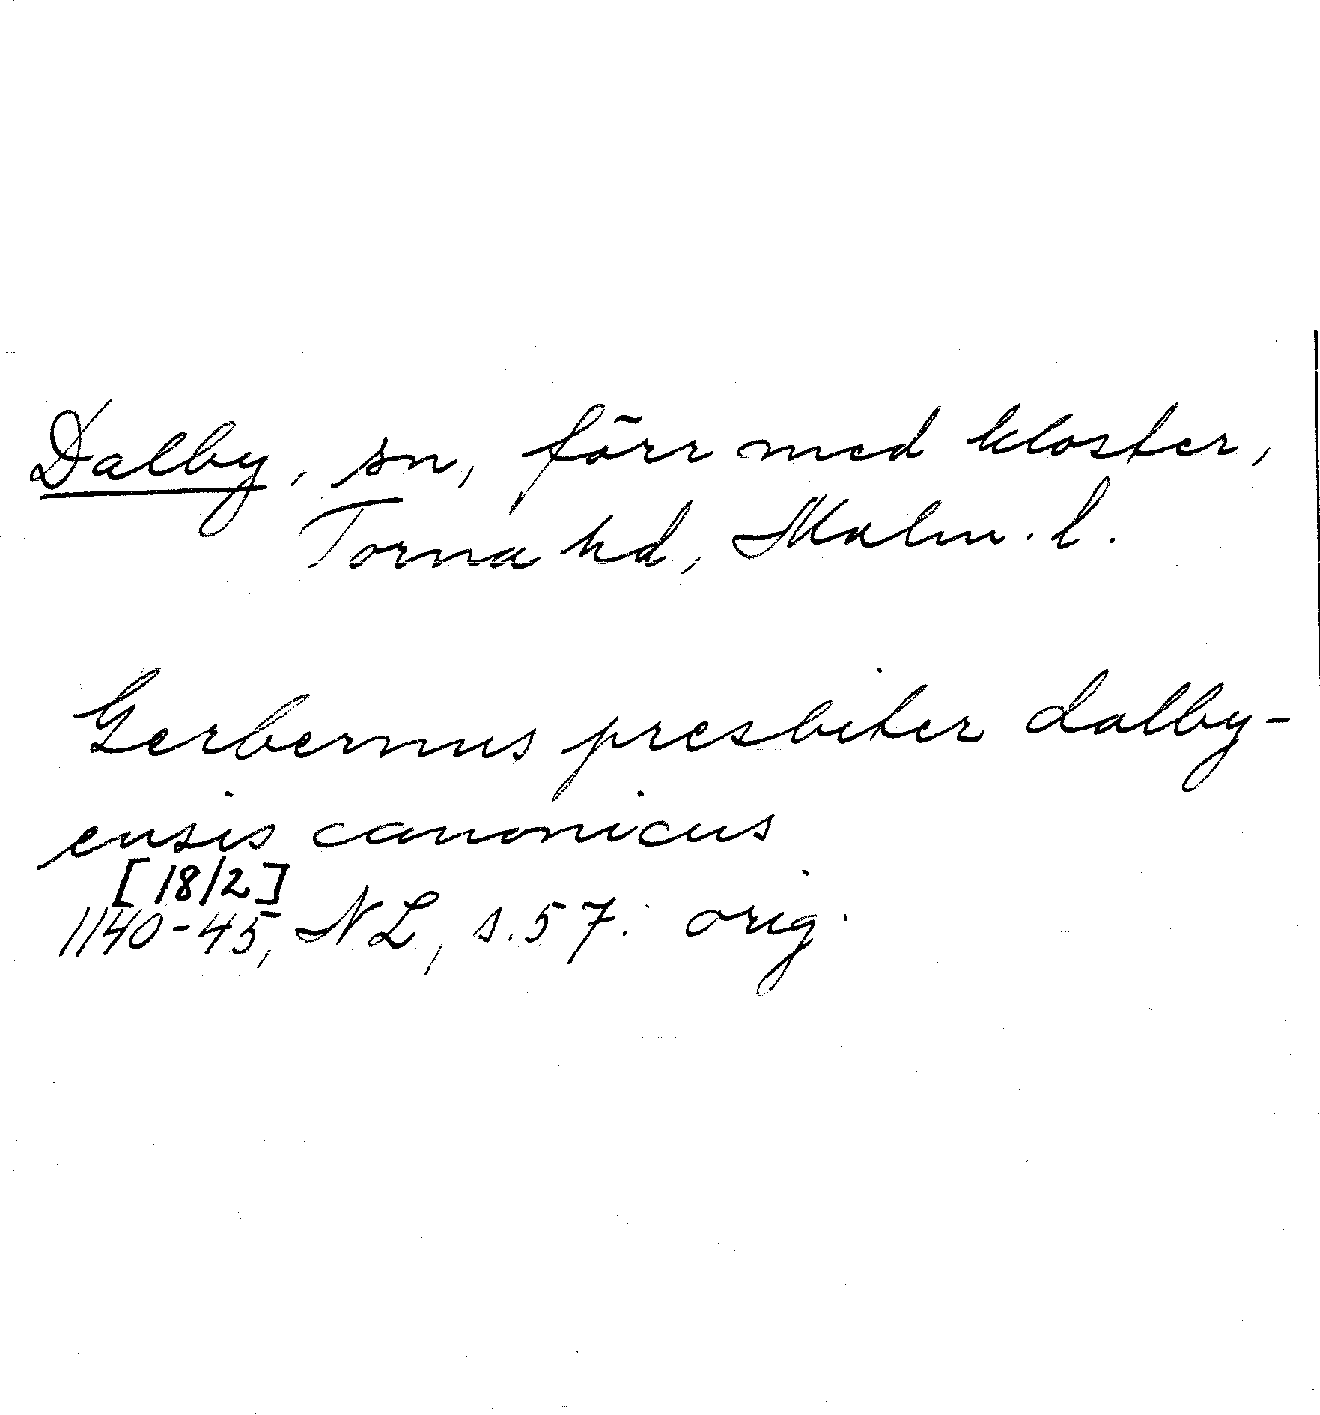 Dalby, sn, förr med kloster,
Torna hd, Malm. l.
Gerbernus presbiter dalby-
ensis canonicus
[18/2]
1140-45, NL, s. 57. orig.